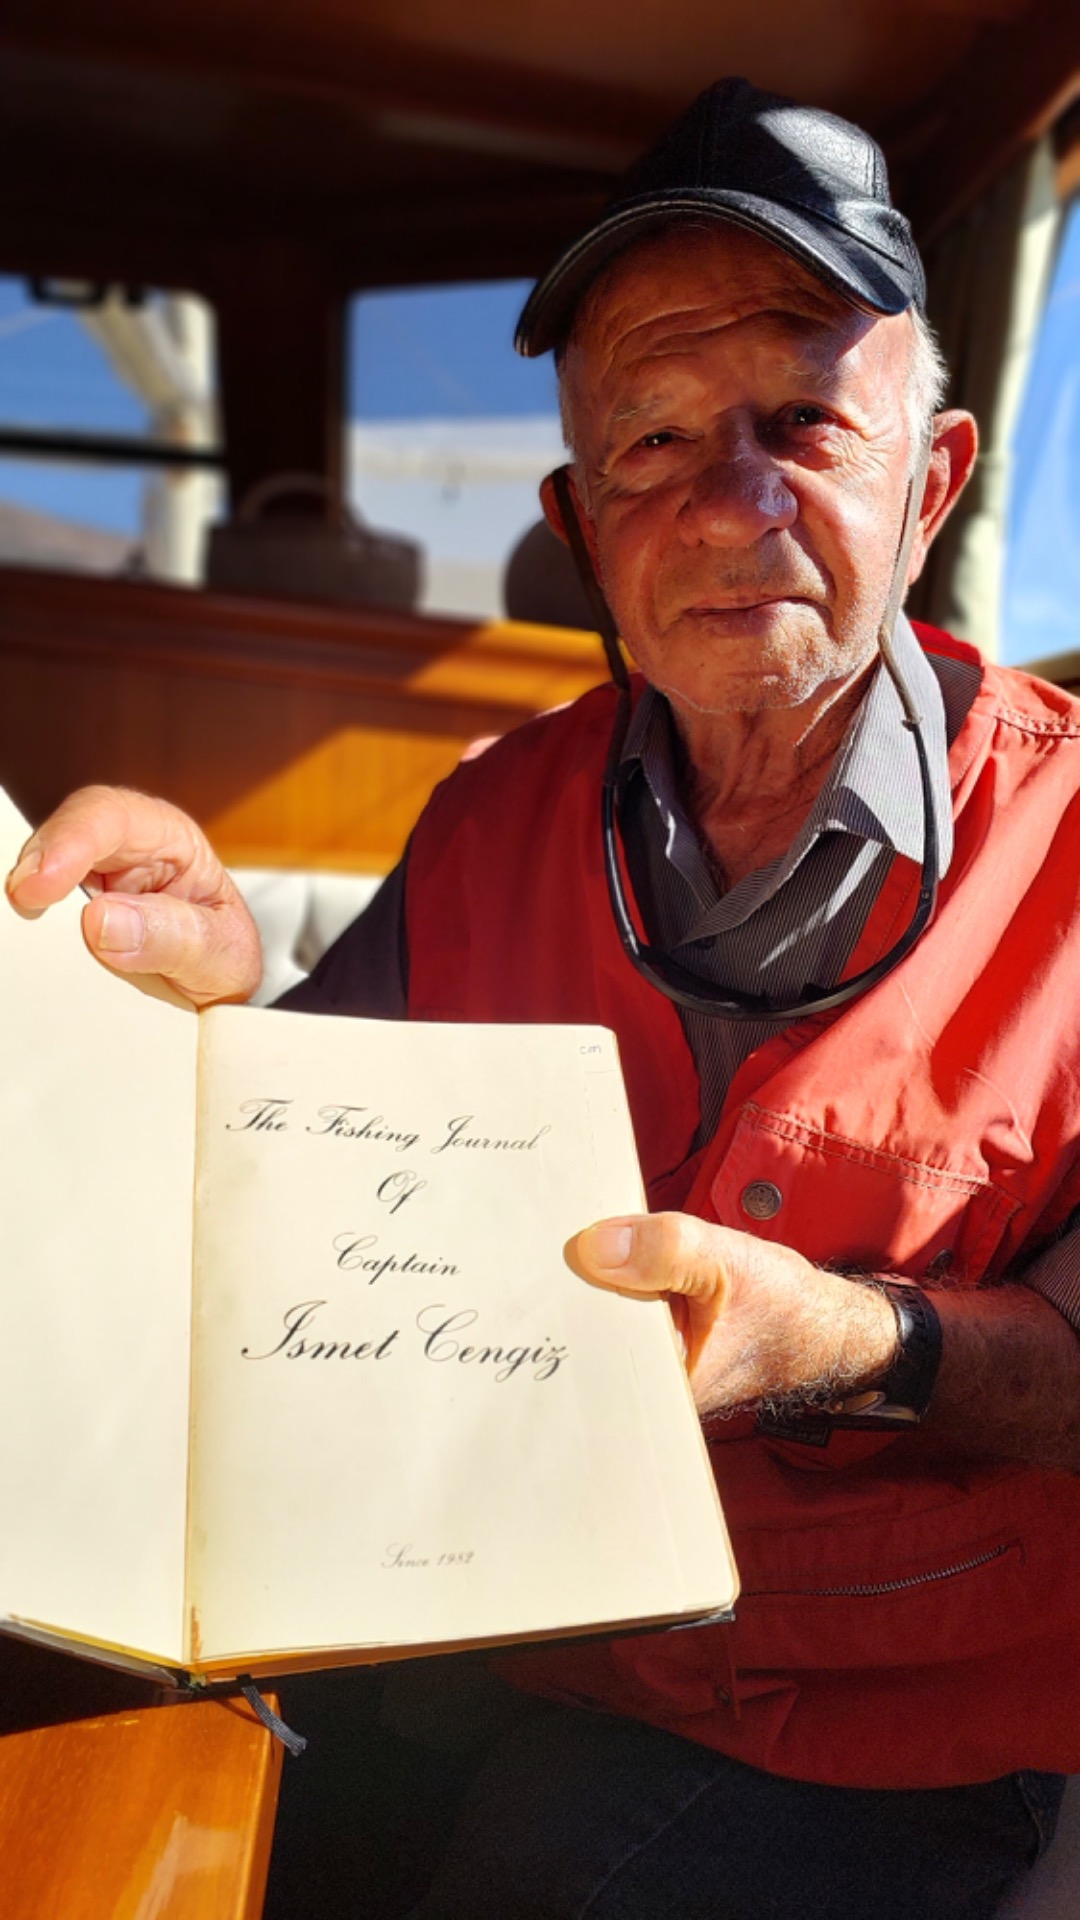 cm
The Fishing Journal
Of
Captain
Ismet Cengiz
Since 1982